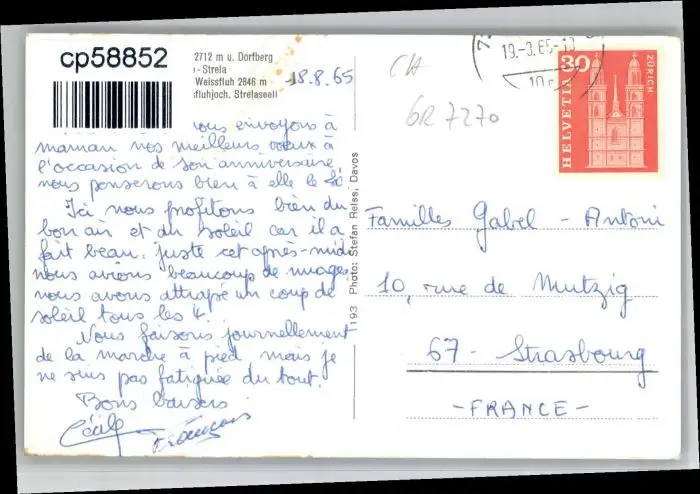 cp58852
2712 m u. Dorfberg
-Strela
Weissfluh 2846 m
fluhjoch. Strelaseeli
18.8.65
CH
GR 7270
19.-3.65-10
HELVETIA
30
ZÜRICH
vous envoyons à
maman nos meilleurs vœux à
l'occasion de son anniversaire,
nous penserons bien à elle le
Ici nous profitons bien du
bon air et du soleil car il a
fait beau. juste cet après-midi
nous avions beaucoup de nuages,
nous avons attrapé un coup de
soleil tous les 4.
Nous faisons journellement
de la marche à pied, mais je
ne suis pas fatiguée du tout.
Bons baisers
Cécile François
1193 Photo: Stefan Reiss, Davos
Familles Gabel - Antoni
10, rue de Mutzig
67 - Strasbourg
- FRANCE -